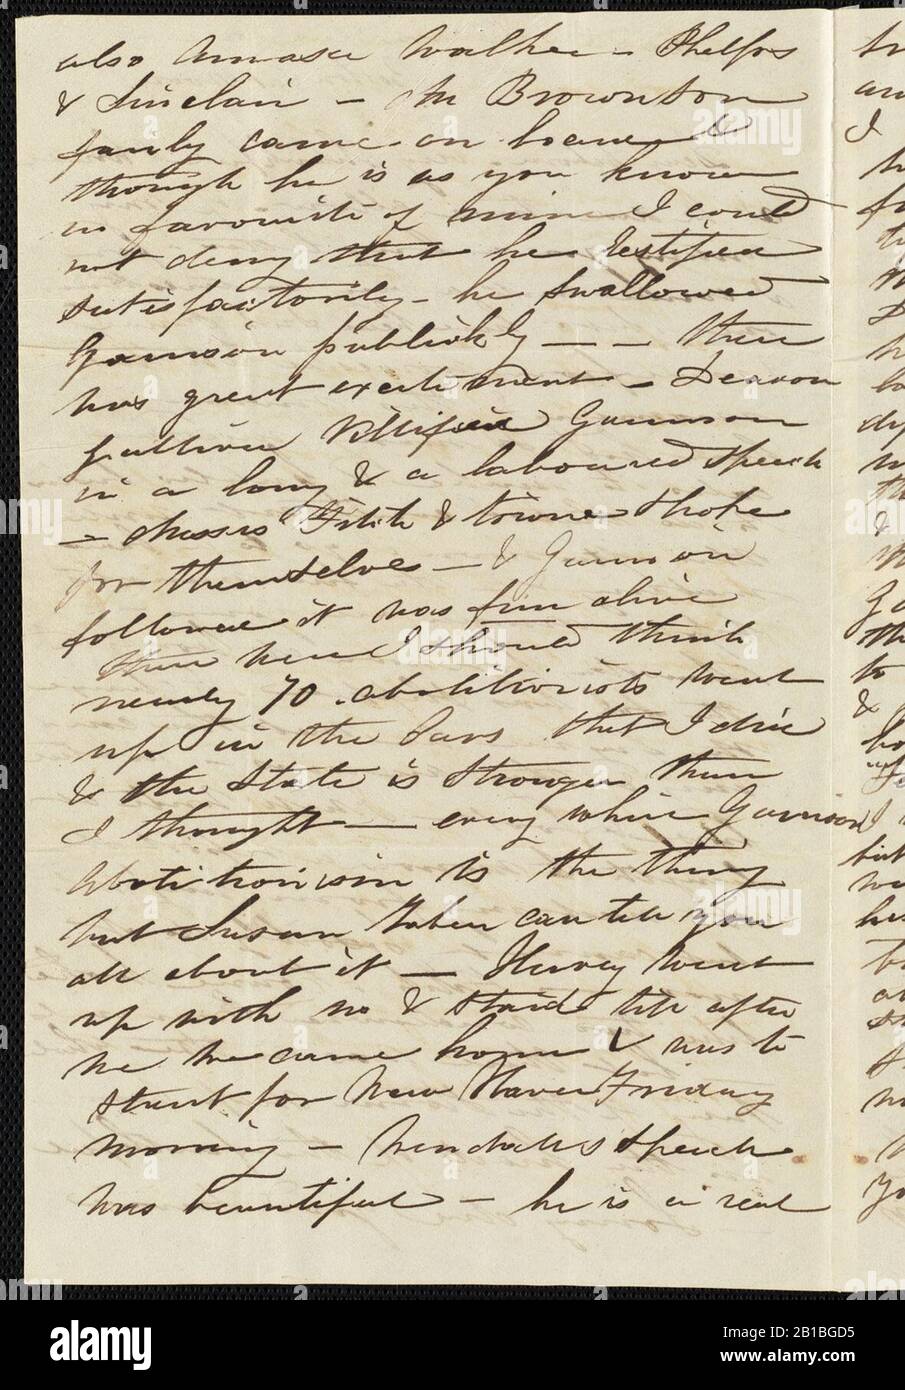 also Amasa Walker - Phelps
& Sinclair - Mr Brownson
fairly came on board &
though he is as you know
no favourite of mine I could
not deny that he testified
satisfactorily - he swallowed
Garrison publickly - - there
was great excitement - Deacon
Gulliver Villified Garrison
in a long & a laboured speech
- Messrs Fitch & towne spoke
for themselves - & Garrison
followed it was fun alive
there were I should think
nearly 70 abolitionists went
up in the Cars that I did
& the State is stronger than
I thought - every where Garrison
abolitionism is the thing
but Susan Taber can tell you
all about it - Hervey went
up with us & staid till after
we came home & was to
start for New Haven Friday
morning - Wendall's speech
was beautiful - he is a real
alamy
Image ID: 2B1BGD5
www.alamy.com